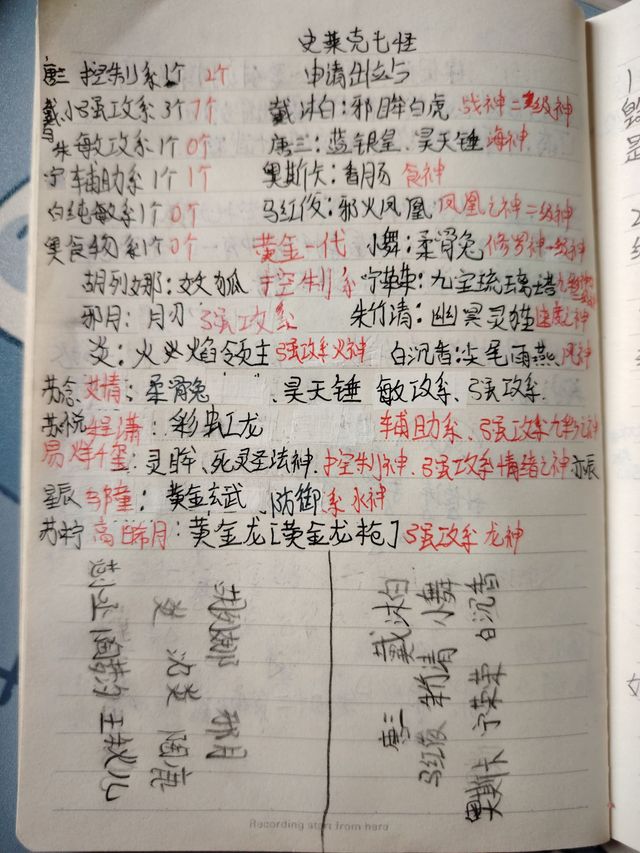 史莱克七怪
唐三 控制系1个 2个 申请出战
戴、小 强攻系3个 7个 戴沐白：邪眸白虎 战神二级神
马
朱 敏攻系1个 0个 唐三：蓝银皇、昊天锤 海神
宁 辅助系1个 1个 奥斯卡：香肠 食神
白纯敏系1个 0个 马红俊：邪火凤凰 凤凰之神二级神
奥食物系1个 0个 黄金一代 小舞：柔骨兔 修罗神一级神
胡列娜：妖狐 控制系 宁荣荣：九宝琉璃塔
邪月：月刃 强攻系 朱竹清：幽冥灵猫 速度之神
炎：火焰领主 强攻系火神 白沉香：尖尾雨燕 风神
苏念 艾情：柔骨兔、昊天锤 敏攻系、强攻系
苏悦 程潇：彩虹龙 辅助系、强攻系九彩之神
易烊千玺：灵眸、死灵圣法神、控制神、强攻系情绪之神 亦辰
星辰 邹童：黄金玄武 防御系 水神
苏柠 高皓月：黄金龙[黄金龙枪] 强攻系 龙神
胡列娜 邪月
炎
戴沐白 小舞 白沉香
唐三 朱竹清 宁荣荣
马红俊 奥斯卡
Recording start from here